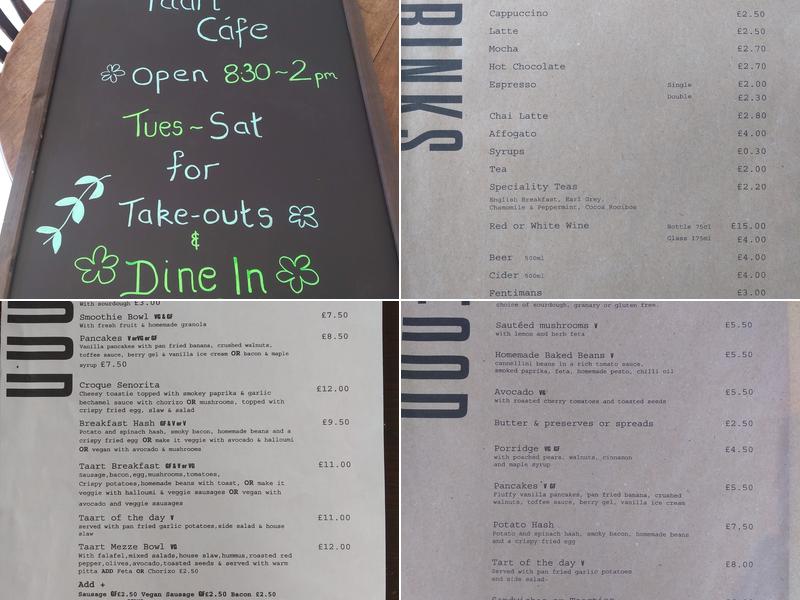 Taart
Cáfe
Open 8:30~2pm
Tues~Sat
for
Take-outs
&
Dine In
RINKS
Cappuccino £2.50
Latte £2.50
Mocha £2.70
Hot Chocolate £2.70
Espresso Single £2.00
Double £2.30
Chai Latte £2.80
Affogato £4.00
Syrups £0.30
Tea £2.00
Speciality Teas £2.20
English Breakfast, Earl Grey,
Chamomile & Peppermint, Cocoa Rooibos
Red or White Wine Bottle 75cl £15.00
Glass 175ml £4.00
Beer 500ml £4.00
Cider 500ml £4.00
Fentimans £3.00
With sourdough £3.00
Smoothie Bowl VG & GF £7.50
With fresh fruit & homemade granola
Pancakes V or VG or GF £8.50
Vanilla pancakes with pan fried banana, crushed walnuts,
toffee sauce, berry gel & vanilla ice cream OR bacon & maple
syrup £7.50
Croque Senorita £12.00
Cheesy toastie topped with smokey paprika & garlic
bechamel sauce with chorizo OR mushrooms, topped with
crispy fried egg, slaw & salad
Breakfast Hash GF & V or V £9.50
Potato and spinach hash, smoky bacon, homemade beans and a
crispy fried egg OR make it veggie with avocado & halloumi
OR vegan with avocado & mushrooms
Taart Breakfast GF & V or VG £11.00
Sausage,bacon,egg,mushrooms,tomatoes,
Crispy potatoes,homemade beans with toast, OR make it
veggie with halloumi & veggie sausages OR vegan with
avocado and veggie sausages
Taart of the day V £11.00
served with pan fried garlic potatoes,side salad & house
slaw
Taart Mezze Bowl VG £12.00
With falafel,mixed salads,house slaw,hummus,roasted red
pepper,olives,avocado,toasted seeds & served with warm
pitta ADD Feta OR Chorizo £2.50
Add +
Sausage GF£2.50 Vegan Sausage GF£2.50 Bacon £2.50
choice of sourdough, granary or gluten free.
Sautéed mushrooms V £5.50
with lemon and herb feta
Homemade Baked Beans V £5.50
cannellini beans in a rich tomato sauce,
smoked paprika, feta, homemade pesto, chilli oil
Avocado VG £5.50
with roasted cherry tomatoes and toasted seeds
Butter & preserves or spreads £2.50
Porridge VG GF £4.50
with poached pears, walnuts, cinnamon
and maple syrup
Pancakes V GF £5.50
Fluffy vanilla pancakes, pan fried banana, crushed
walnuts, toffee sauce, berry gel, vanilla ice cream
Potato Hash £7,50
Potato and spinach hash, smoky bacon, homemade beans
and a crispy fried egg
Tart of the day V £8.00
Served with pan fried garlic potatoes
and side salad